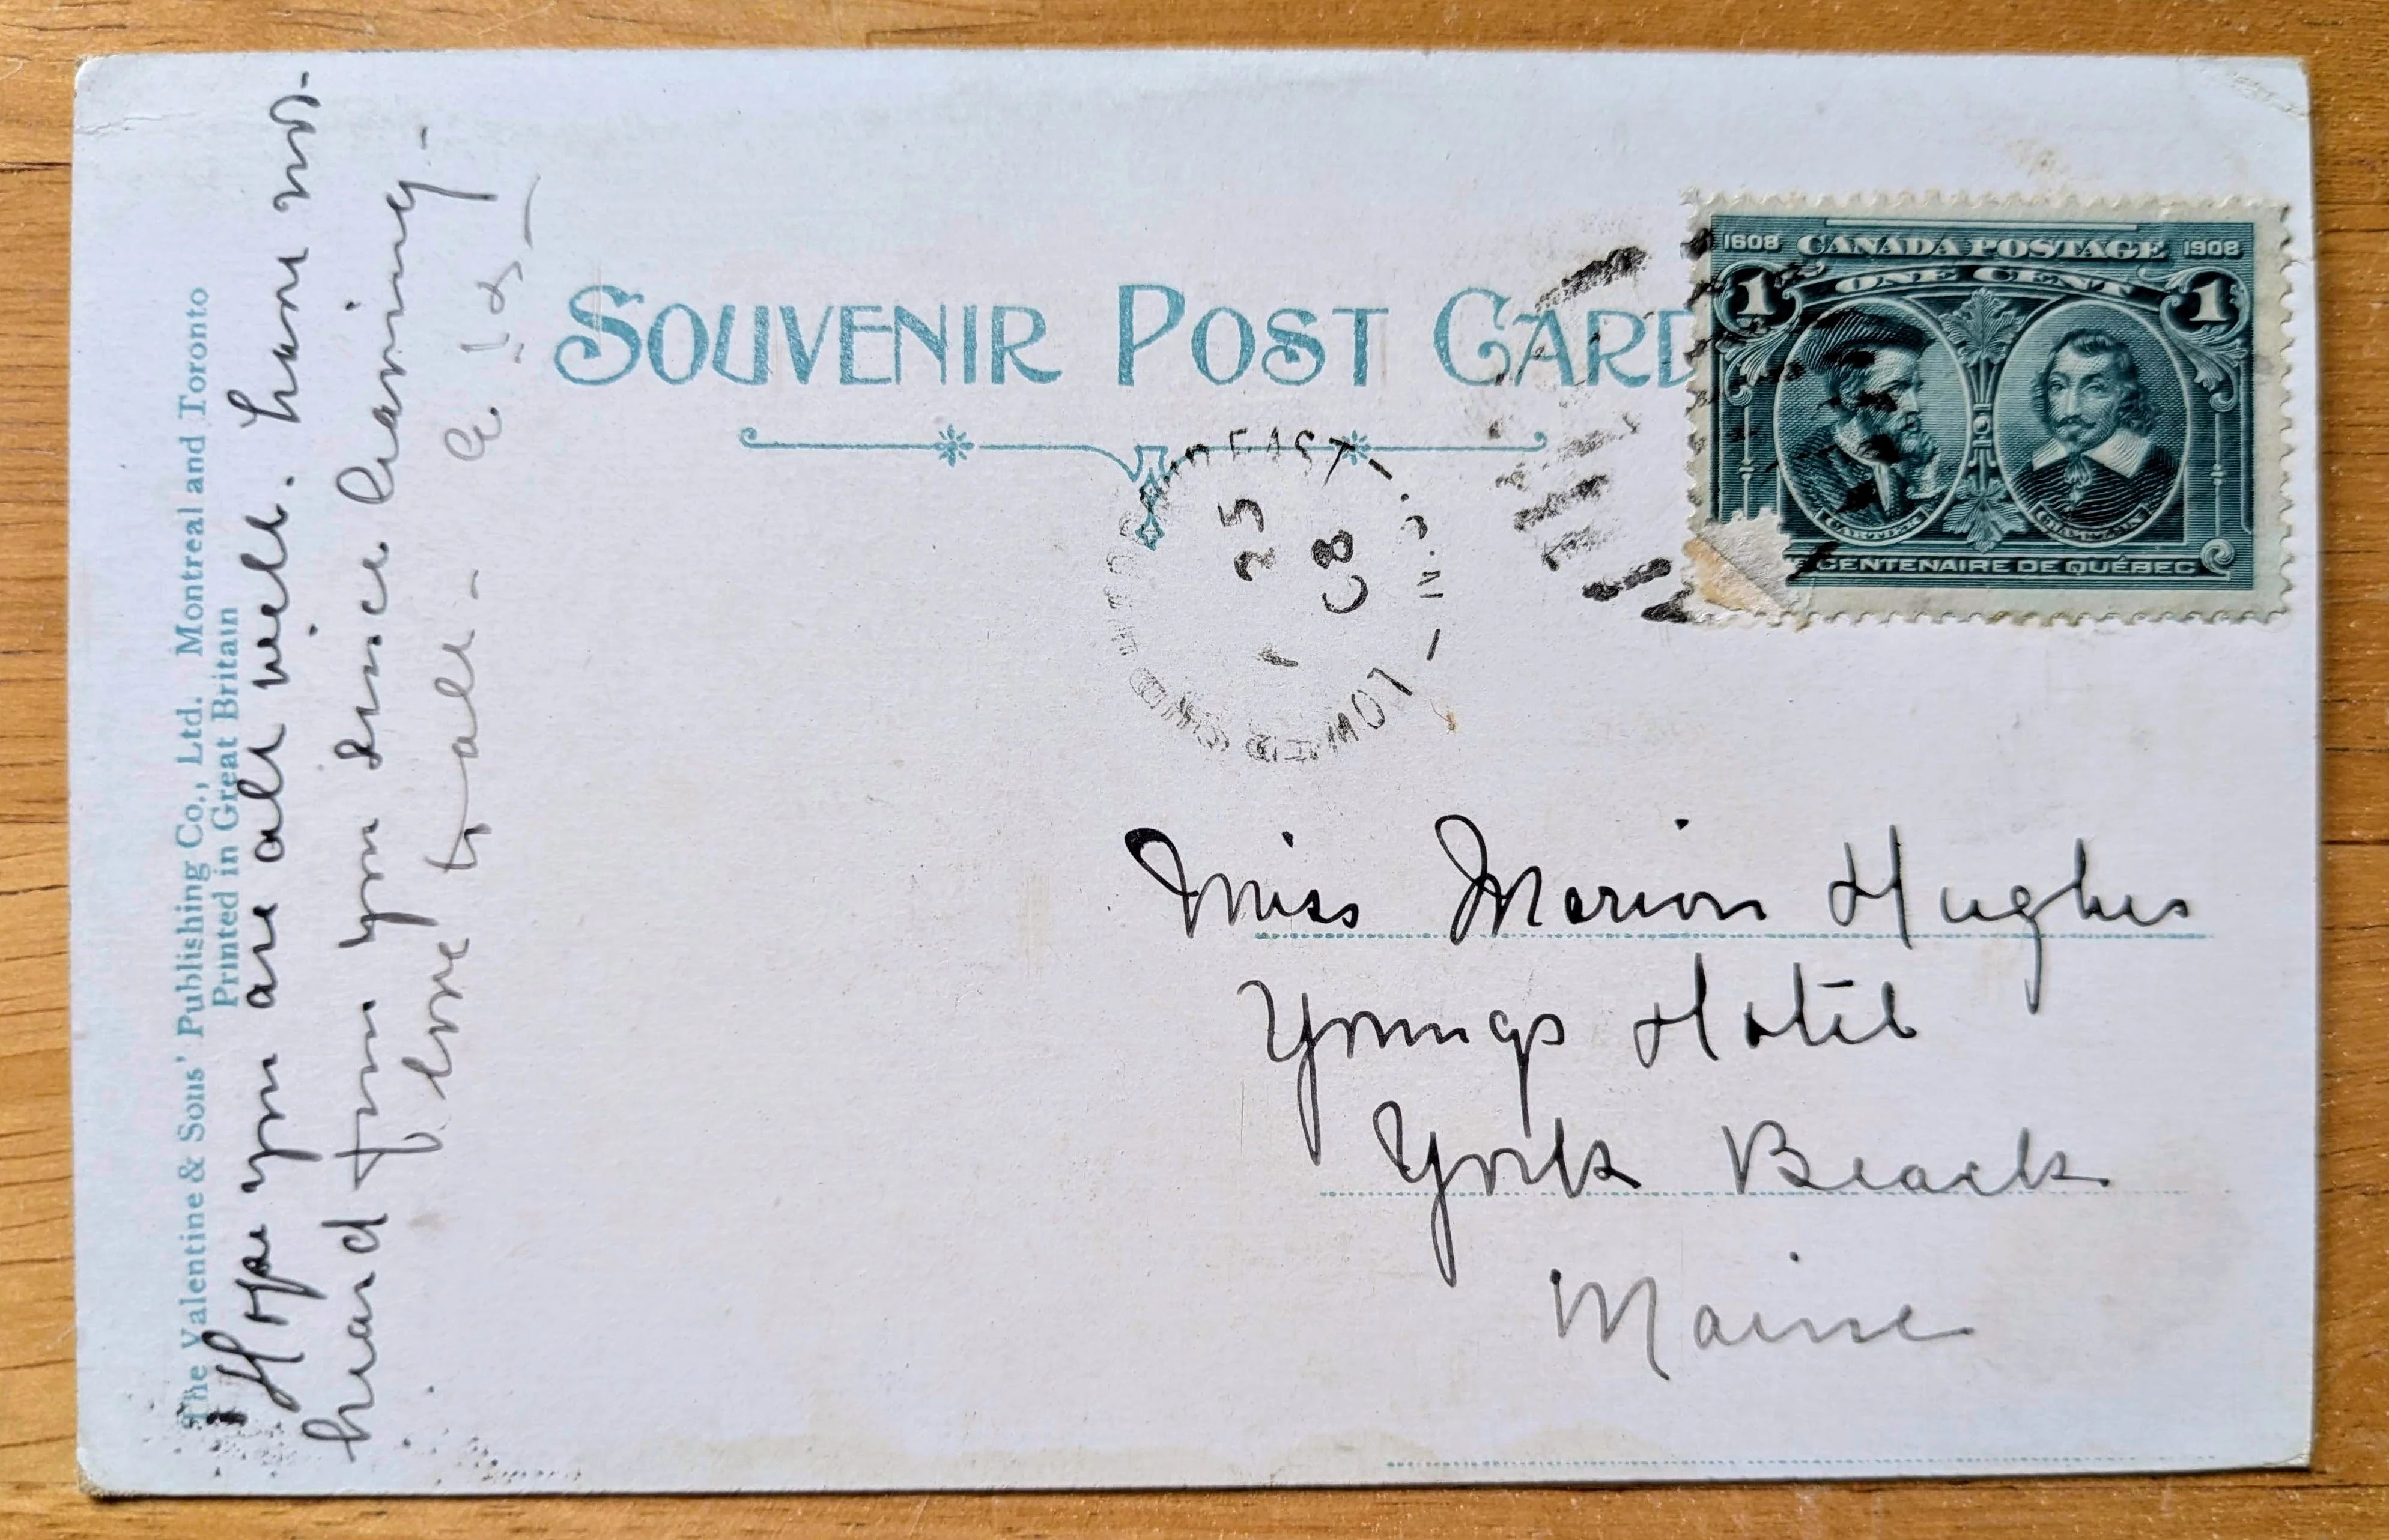 The Valentine & Sons' Publishing Co., Ltd. Montreal and Toronto
Printed in Great Britain
Hope you are all well. Have not
heard from you since leaving -
Love to all -
SOUVENIR POST CARD
1608 CANADA POSTAGE 1908
1 ONE CENT 1
CARTIER CHAMPLAIN
CENTENAIRE DE QUÉBEC
EAST
25
08
N.S.
LOW
Miss Marion Hughes
Youngs Hotel
York Beach
Maine